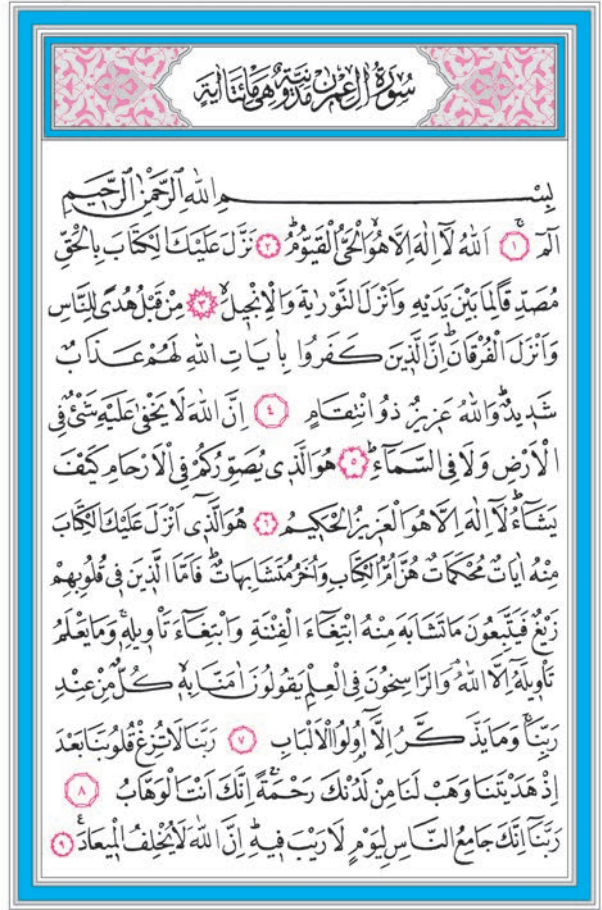 سُورَةُ اٰلِ عِمْرٰنَ مَدَنِيَّةٌ وَهِيَ مِائَتَا اٰيَةٍ
بِسْمِ اللّٰهِ الرَّحْمٰنِ الرَّحٖيمِ
الٓمٓۚ ﴿١﴾ اَللّٰهُ لَٓا اِلٰهَ اِلَّا هُوَۙ الْحَيُّ الْقَيُّومُۜ ﴿٢﴾ نَزَّلَ عَلَيْكَ الْكِتَابَ بِالْحَقِّ
مُصَدِّقًا لِمَا بَيْنَ يَدَيْهِ وَاَنْزَلَ التَّوْرٰيةَ وَالْاِنْجٖيلَۙ ﴿٣﴾ مِنْ قَبْلُ هُدًى لِلنَّاسِ
وَاَنْزَلَ الْفُرْقَانَۜ اِنَّ الَّذٖينَ كَفَرُوا بِاٰيَاتِ اللّٰهِ لَهُمْ عَذَابٌ
شَدٖيدٌۜ وَاللّٰهُ عَزٖيزٌ ذُو انْتِقَامٍ ﴿٤﴾ اِنَّ اللّٰهَ لَا يَخْفٰى عَلَيْهِ شَيْءٌ فِي
الْاَرْضِ وَلَا فِي السَّمَٓاءِۜ ﴿٥﴾ هُوَ الَّذٖي يُصَوِّرُكُمْ فِي الْاَرْحَامِ كَيْفَ
يَشَٓاءُۜ لَٓا اِلٰهَ اِلَّا هُوَ الْعَزٖيزُ الْحَكٖيمُ ﴿٦﴾ هُوَ الَّذٖٓي اَنْزَلَ عَلَيْكَ الْكِتَابَ
مِنْهُ اٰيَاتٌ مُحْكَمَاتٌ هُنَّ اُمُّ الْكِتَابِ وَاُخَرُ مُتَشَابِهَاتٌۜ فَاَمَّا الَّذٖينَ فٖي قُلُوبِهِمْ
زَيْغٌ فَيَتَّبِعُونَ مَا تَشَابَهَ مِنْهُ ابْتِغَٓاءَ الْفِتْنَةِ وَابْتِغَٓاءَ تَأْوٖيلِهٖۚ وَمَا يَعْلَمُ
تَأْوٖيلَهُٓ اِلَّا اللّٰهُۘ وَالرَّاسِخُونَ فِي الْعِلْمِ يَقُولُونَ اٰمَنَّا بِهٖۙ كُلٌّ مِنْ عِنْدِ
رَبِّنَاۚ وَمَا يَذَّكَّرُ اِلَّٓا اُو۬لُوا الْاَلْبَابِ ﴿٧﴾ رَبَّنَا لَا تُزِغْ قُلُوبَنَا بَعْدَ
اِذْ هَدَيْتَنَا وَهَبْ لَنَا مِنْ لَدُنْكَ رَحْمَةًۚ اِنَّكَ اَنْتَ الْوَهَّابُ ﴿٨﴾
رَبَّنَٓا اِنَّكَ جَامِعُ النَّاسِ لِيَوْمٍ لَا رَيْبَ فٖيهِۜ اِنَّ اللّٰهَ لَا يُخْلِفُ الْمٖيعَادَ۟ ﴿٩﴾